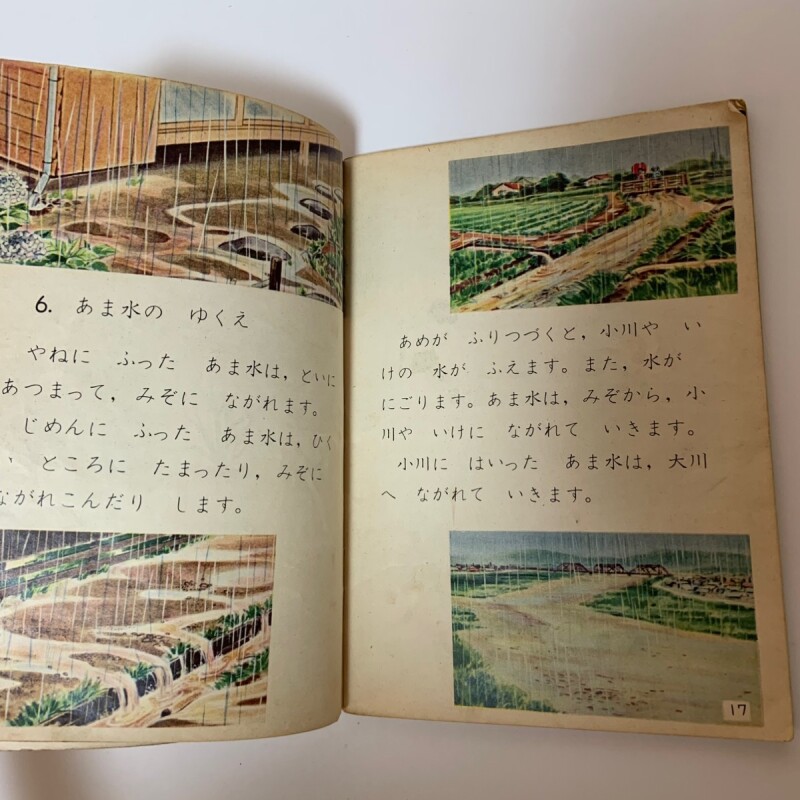 6. あま水の ゆくえ
やねに ふった あま水は，といに
あつまって，みぞに ながれます。
じめんに ふった あま水は，ひく
ところに たまったり，みぞに
ながれこんだり します。
あめが ふりつづくと，小川や い
けの 水が ふえます。また，水が
にごります。あま水は，みぞから，小
川や いけに ながれて いきます。
小川に はいった あま水は，大川
へ ながれて いきます。
17